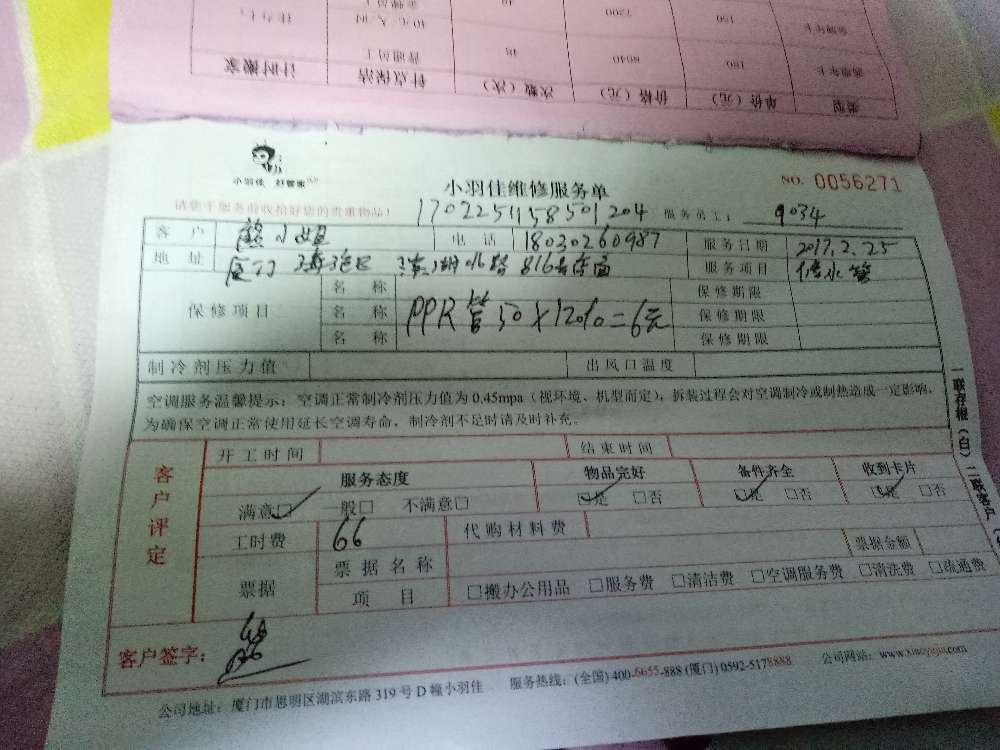 类型 单价（元） 价格（元） 次数（次） 钟点保洁 计时搬家
180 8640 48 普通员工
150 7200 48 40元/人/时
小羽佳 好管家
小羽佳维修服务单
NO. 0056271
请您于服务前收拾好您的贵重物品！
1702251158501204 服务员工： 9034
客户 熊小姐 电话 18030260987 服务日期 2017.2.25
地址 厦门 湖北路 816 服务项目 修水管
保修项目 名称 保修期限
名称 PPR管50×12%=6元 保修期限
名称 保修期限
制冷剂压力值 出风口温度
空调服务温馨提示：空调正常制冷剂压力值为0.45mpa（视环境、机型而定），拆装过程会对空调制冷或制热造成一定影响，
为确保空调正常使用延长空调寿命，制冷剂不足时请及时补充。
一联存根（白）二联客户（
客户评定
开工时间 结束时间
服务态度 物品完好 备件齐全 收到卡片
满意□ 一般□ 不满意□ □是 □否 □是 □否 □是 □否
工时费 66 代购材料费
票据 票据名称 票据金额
项目 □搬办公用品 □服务费 □清洁费 □空调服务费 □清洗费 □疏通费
客户签字： 熊
公司地址：厦门市思明区湖滨东路319号D幢小羽佳 服务热线：(全国) 400-6655-888 (厦门) 0592-5178888 公司网站：www.xiaoyujia.com